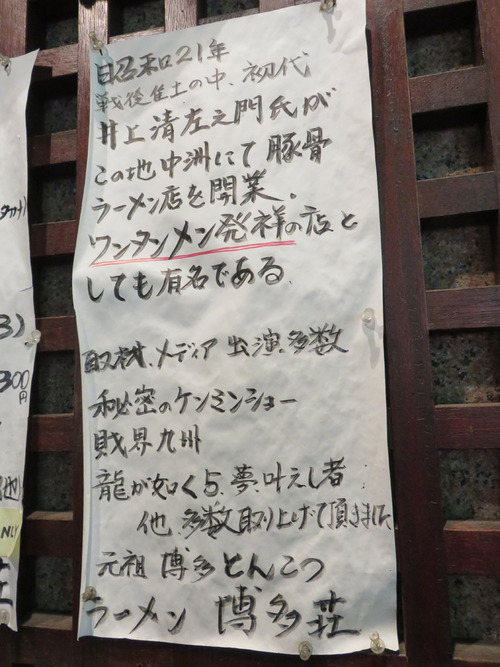 昭和21年
戦後隹土の中、初代
井上清左之門氏が
この地中洲にて豚骨
ラーメン店を開業。
ワンタンメン発祥の店と
しても有名である。
取材、メディア出演、多数
秘密のケンミンショー
財界九州
龍が如く5、夢、叶えし者
他、多数取り上げて頂きました
元祖 博多とんこつ
ラーメン 博多荘
3)
300
円
他)
NLY